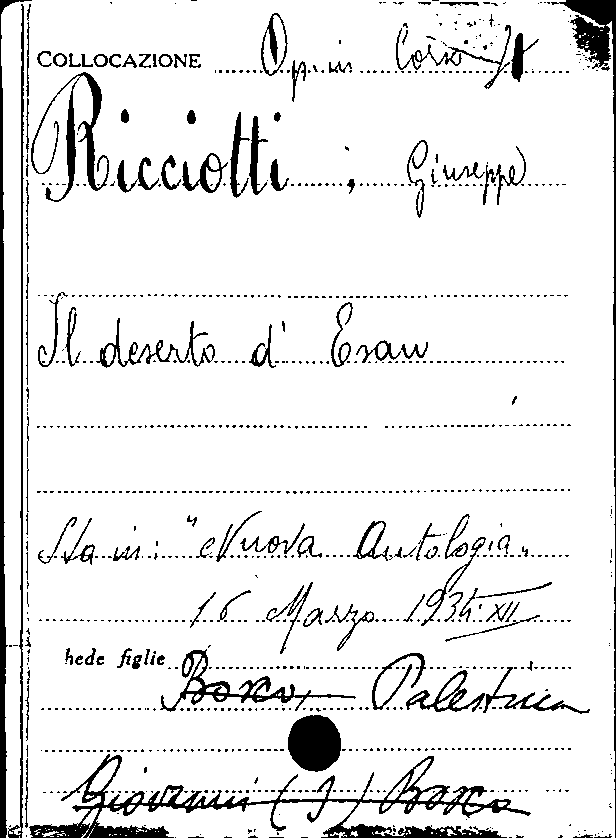 COLLOCAZIONE Op. in
Ricciotti, Giuseppe
Il deserto d' Esau
Sta in: "Nuova Antologia"
16 Marzo 1934-XII
hede figlie
Bosco, Palestina
Giovanni (S) Bosco